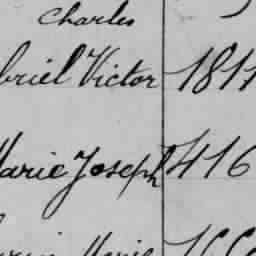 Charles
briel Victor 181
Marie Joseph 416
Marie